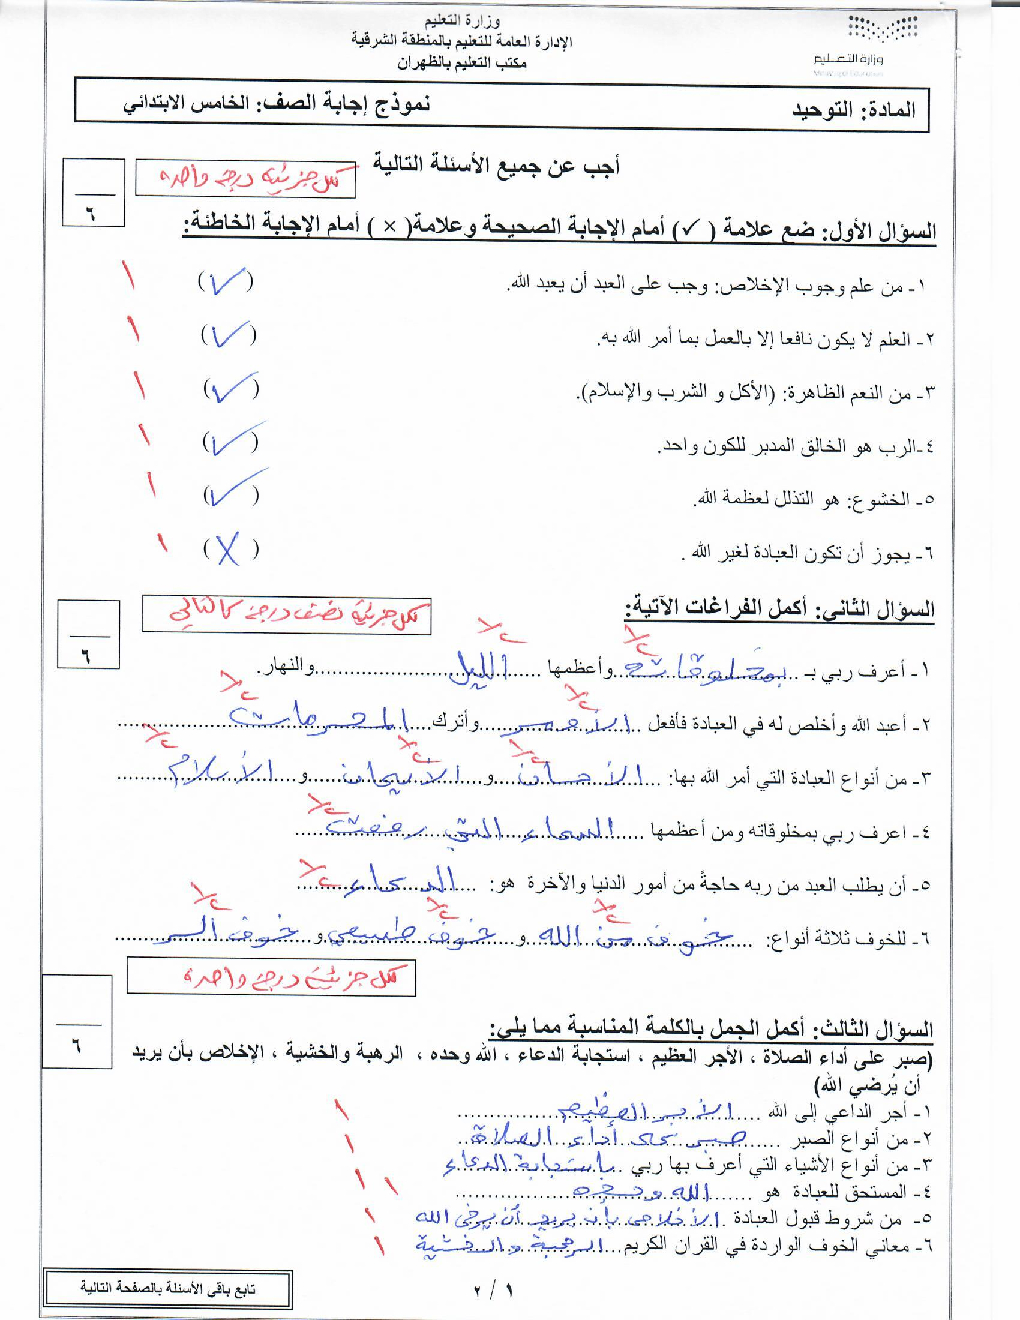 وزارة التعليم
الإدارة العامة للتعليم بالمنطقة الشرقية
مكتب التعليم بالظهران
وزارة التعـــليم
المادة: التوحيد نموذج إجابة الصف: الخامس الابتدائي
أجب عن جميع الأسئلة التالية
كل جزئية درجة واحدة
٦
السؤال الأول: ضع علامة ( ✓ ) أمام الإجابة الصحيحة وعلامة( × ) أمام الإجابة الخاطئة:
١- من علم وجوب الإخلاص: وجب على العبد أن يعبد الله. (✓) ١
٢- العلم لا يكون نافعا إلا بالعمل بما أمر الله به. (✓) ١
٣- من النعم الظاهرة: (الأكل و الشرب والإسلام). (✓) ١
٤-الرب هو الخالق المدبر للكون واحد. (✓) ١
٥- الخشوع: هو التذلل لعظمة الله. (✓) ١
٦- يجوز أن تكون العبادة لغير الله . (X) ١
السؤال الثاني: أكمل الفراغات الآتية:
لكل جزئية نصف درجة كالتالي
٦
١- أعرف ربي بـ ...بمخلوقاته...وأعظمها ......الليل......والنهار.
٢- أعبد الله وأخلص له في العبادة فأفعل ..الأمر......وأترك...المحرمات......
٣- من أنواع العبادة التي أمر الله بها: ...الإحسان...و...الإيمان......و...الإسلام......
٤- اعرف ربي بمخلوقاته ومن أعظمها ......السماء التي رفعت......
٥- أن يطلب العبد من ربه حاجةً من أمور الدنيا والآخرة هو: ......الدعاء......
٦- للخوف ثلاثة أنواع: ...خوف من الله...و...خوف طبيعي...و...خوف السر......
كل جزئية درجة واحدة
٦
السؤال الثالث: أكمل الجمل بالكلمة المناسبة مما يلي:
(صبر على أداء الصلاة ، الأجر العظيم ، استجابة الدعاء ، الله وحده ، الرهبة والخشية ، الإخلاص بأن يريد
أن يُرضي الله)
١- أجر الداعي إلى الله ......الأجر العظيم...... ١
٢- من أنواع الصبر ......صبر على أداء الصلاة.. ١
٣- من أنواع الأشياء التي أعرف بها ربي ..باستجابة الدعاء ١
٤- المستحق للعبادة هو ......الله وحده...... ١
٥- من شروط قبول العبادة ..الإخلاص بأن يريد أن يرضي الله ١
٦- معاني الخوف الواردة في القران الكريم...الرهبة والخشية ١
١ / ٢
تابع باقي الأسئلة بالصفحة التالية